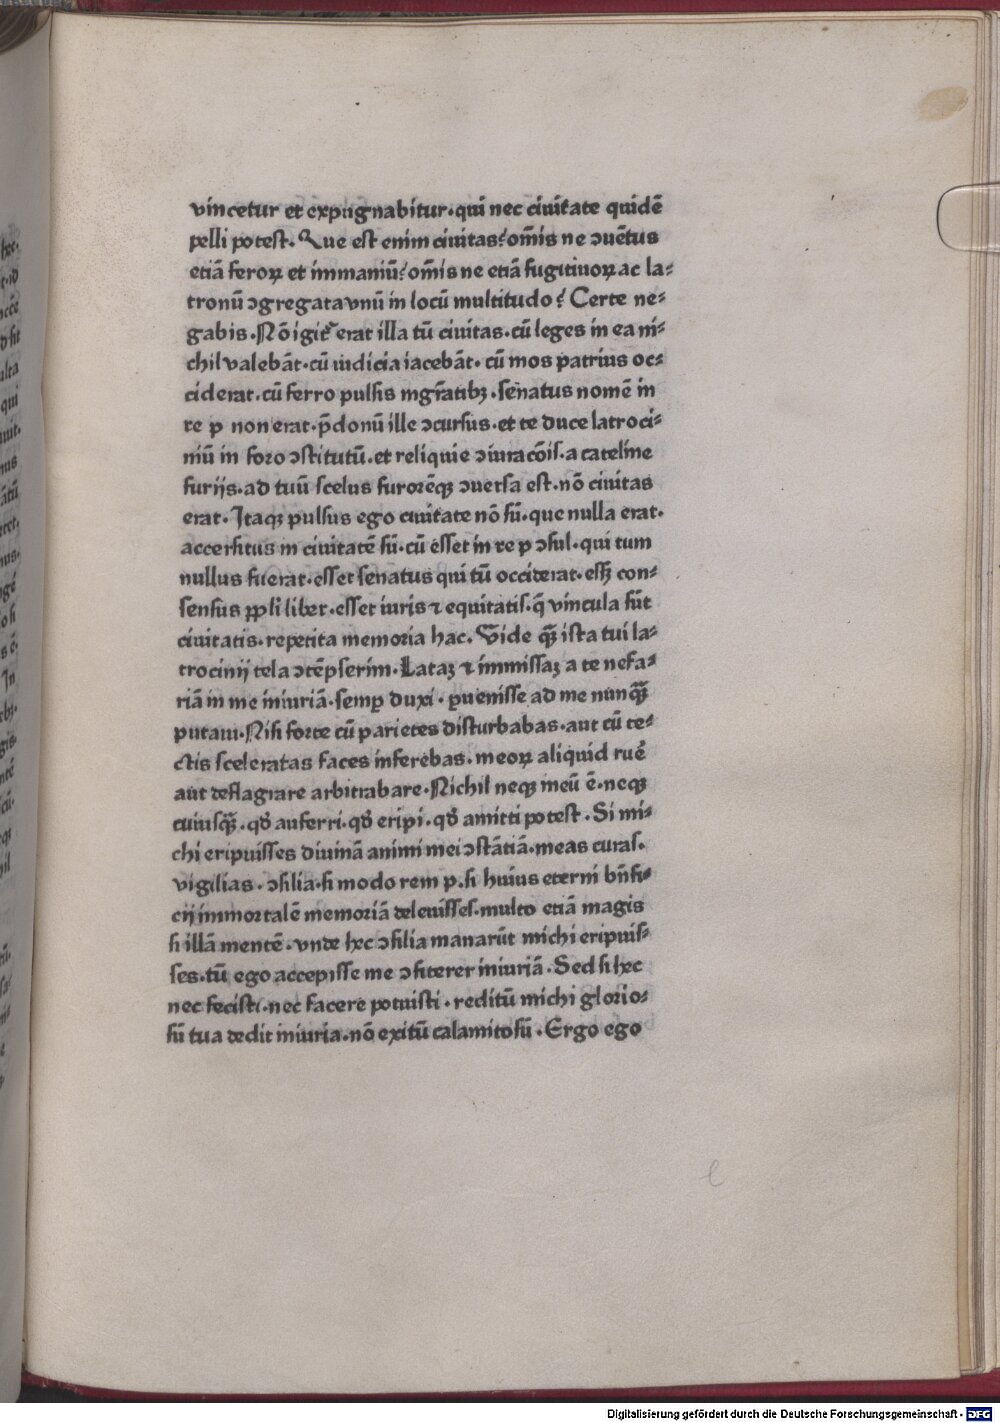 vincetur et expugnabitur·qui nec ciuitate quidē
pelli potest. Que est enim ciuitas? om̄is ne ↄuētus
etiā feroꝝ et immaniū? om̄is ne etiā fugitiuoꝝ ac la⸗
tronū ↄgregata vnū in locū multitudo? Certe ne⸗
gabis. Nō igit᷑ erat illa tū ciuitas. cū leges in ea ni⸗
chil valebāt·cū iudicia iacebāt. cū mos patrius oc⸗
ciderat. cū ferro pulsis mgr̄atibꝫ. senatus nomē in
re p non erat. p̄donū ille ↄcursus. et te duce latroci⸗
niū in foro ↄstitutū. et reliquie ↄiuracōis. a cateline
furijs. ad tuū scelus furorēqꝫ ↄuersa est. nō ciuitas
erat. Itaqꝫ pulsus ego ciuitate nō sū. que nulla erat.
accersitus in ciuitatē sū. cū esset in re p ↄsul. qui tum
nullus fuerat. esset senatus qui tū occiderat. essꝫ con⸗
sensus ꝓpli liber. esset iuris ⁊ equitatis. q̄ vincula sūt
ciuitatis. repetita memoria hac. Vide qꝫ̄ ista tui la⸗
trocinij tela ↄtēpserim. Lataꝫ ⁊ immissaꝫ a te nefa⸗
riā in me iniuriā. semꝑ duxi. ꝑuenisse ad me nunqꝫ̄
putaui. Nisi forte cū parietes disturbabas. aut cū te⸗
ctis sceleratas faces inferebas. meoꝝ aliquid ruē
aut deflagrare arbitrabare. Nichil neqꝫ meū ē. neqꝫ
cuiusqꝫ̄. qđ auferri. qđ eripi. qđ amitti potest. Si mi⸗
chi eripuisses diuinā animi mei ↄstātiā. meas curas.
vigilias. ↄsilia. si modo rem p. si huius eterni bn̄fi⸗
cij immortalē memoriā deleuisses. multo etiā magis
si illā mentē. vnde hec ↄsilia manarūt michi eripuis⸗
ses. tū ego accepisse me ↄfiterer iniuriā. Sed si hec
nec fecisti. nec facere potuisti. reditū michi glorio⸗
sū tua dedit iniuria. nō exitū calamitosū. Ergo ego
Digitalisierung gefördert durch die Deutsche Forschungsgemeinschaft - DFG